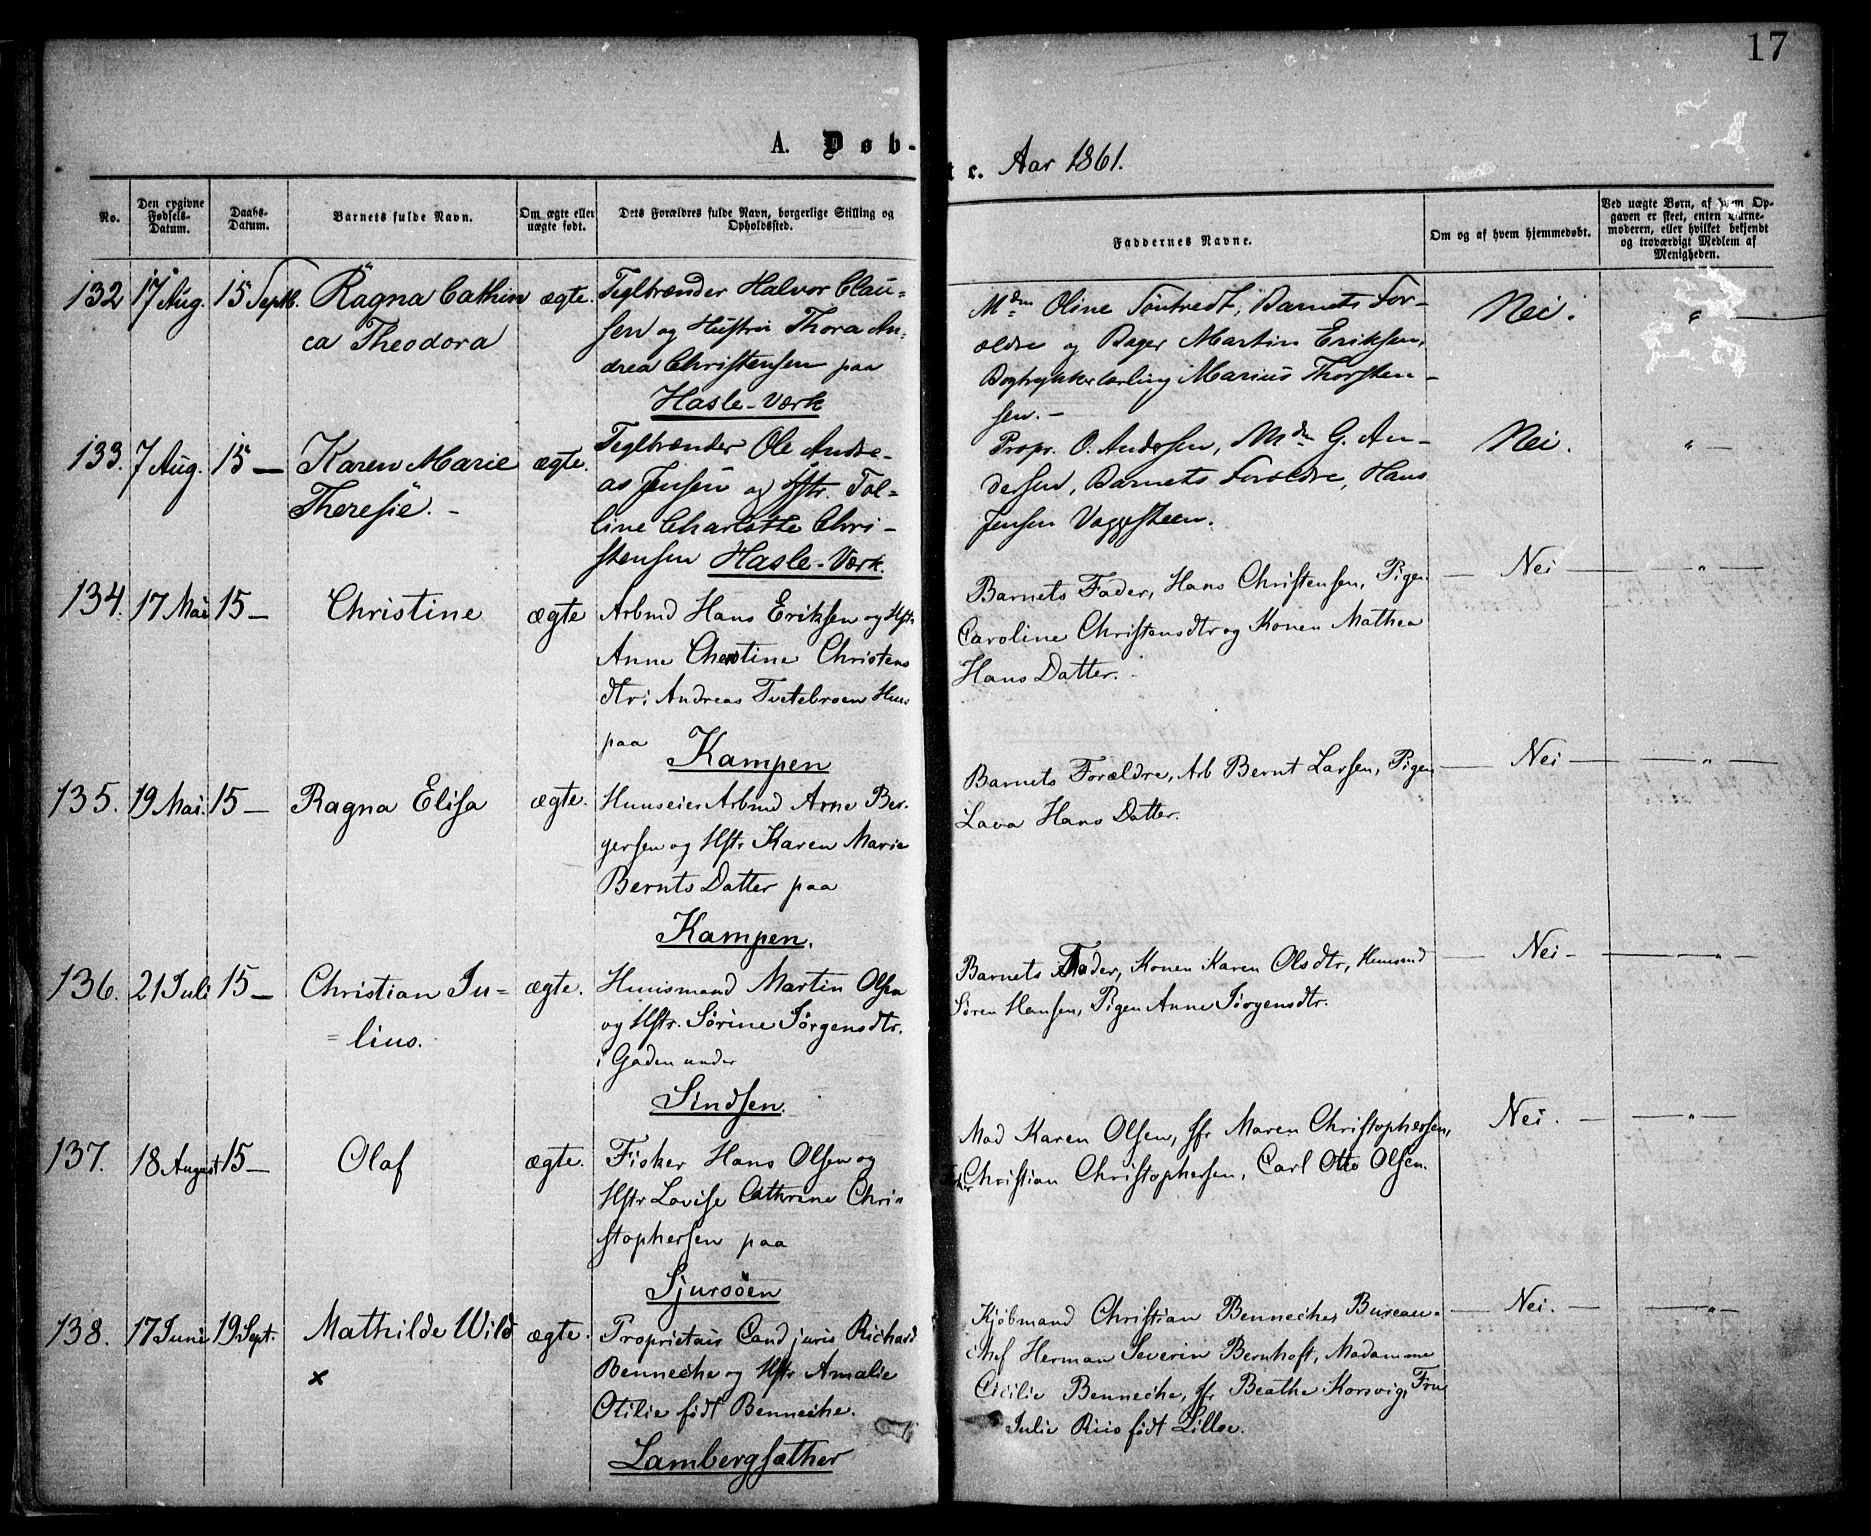 17
A. Døb-
te. Aar 1861.
No.
Den opgivne Fødsels-Datum.
Daabs-Datum.
Barnets fulde Navn.
Om ægte eller uægte født.
Dets Forældres fulde Navn, borgerlige Stilling og Opholdssted.
Faddernes Navne.
Om og af hvem hjemmedøbt.
Ved uægte Børn, af hvem Op-
gaven er skeet, enten Barne-
moderen, eller hvilket bekjendt
og troværdigt Medlem af
Menigheden.
132 17 Aug. 15 Septb. Ragna Cathin ægte. Teglbrænder Halvor Clau-
ca Theodora sen og Hustru Thora An-
drea Christensen paa
Hasle-Værk
Mdm Oline Tøntvedt, Barnets For-
ældre og Bager Martin Eriksen,
Bogtrykkerlærling Marius Thorsten-
sen. -
Nei. "
133. 7 Aug. 15 — Karen Marie ægte. Teglbrænder Ole Andre-
Theresie. - as Jensen og Hstr. Tol-
line Charlotte Chri-
stensen Hasle-Værk.
Propr. O. Andersen, Mdm G. An-
dersen, Barnets Forældre, Hans
Jensen Vaggesteen.
Nei. " —
134. 17 Mai 15 — Christine ægte Arbmd Hans Eriksen og Hstr
Anne Christine Christens
dtr i Andreas Tvetebroen Huus
paa Kampen
Barnets Fader, Hans Christensen, Pigen
Caroline Christensdtr og Konen Mathea
Hans Datter.
— Nei — — " —
135. 19 Mai. 15 — Ragna Elisa ægte. Huuseier Arbmd Arne Ber-
gersen og Hstr Karen Marie
Bernts Datter paa
Kampen.
Barnets Forældre, Arb Bernt Larsen, Pigen
Lava Hans Datter.
— Nei — — " —
136. 21 Juli 15 — Christian Ju= ægte. Huusmand Martin Olsen
= lius. og Hstr. Sørine Jørgensdtr.
i Gaden under
Sindsen.
Barnets Fader, Konen Karen Olsdtr, Huusmd
Søren Hansen, Pigen Anne Jørgensdtr.
— Nei — — " —
137. 18 August 15 — Olaf ægte. Fisker Hans Olsen og
Hstr Lovise Cathrine Chri-
stophersen paa
Sjursøen
Mad Karen Olsen, Jfr Maren Christophersen,
Christian Christophersen, Carl Otto Olsen.
Nei. — — " —
138. 17 Juni 19 Sept. Mathilde Wild ægte. Proprietair Cand juris Richard
x Benneche og Hstr Amalie
Otilie født Benneche.
Lambergsæther
Kjøbmand Christian Benneche, Bureau-
chef Herman Severin Bernhoft, Madamme
Cicilie Benneche, Jfr Beathe Korsvig, Fru
Julie Riis født Lilloe.
— Nei. — — " —